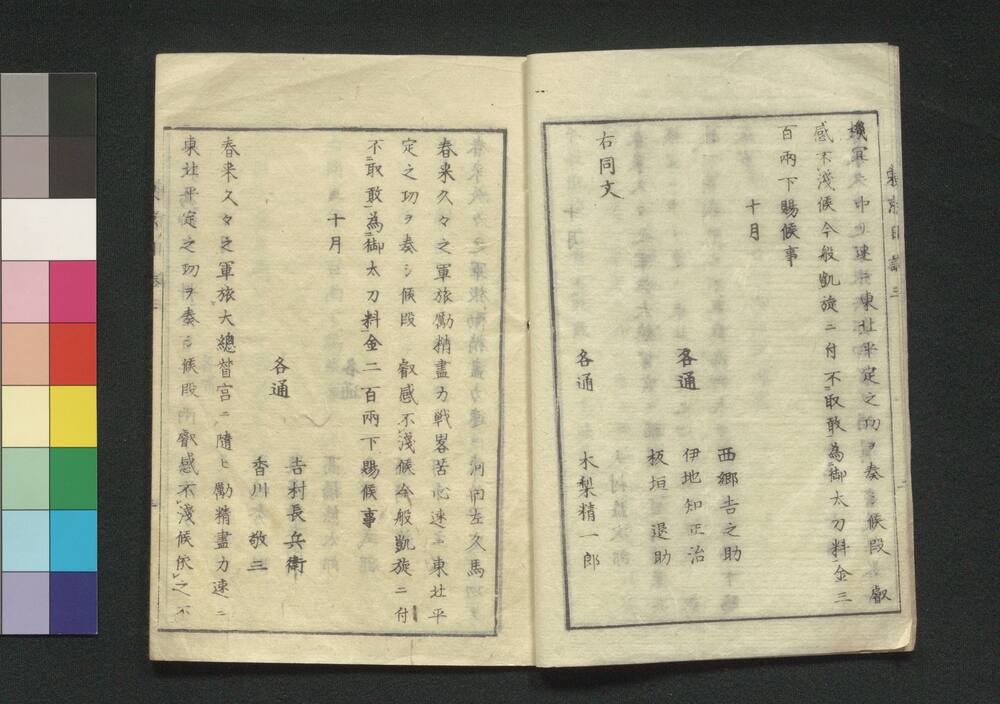 東京日誌三
機宜ニ中リ速ニ東北平定之功ヲ奏シ候段 叡
感不淺候今般凱旋ニ付不取敢為御太刀料金三
百兩下賜候事
十月
西郷吉之助
各通 伊地知正治
板垣退助
右同文
各通 木梨精一郎
春来久々之軍旅勵精盡力戦畧苦心速ニ東北平
定之功ヲ奏シ候段 叡感不淺候今般凱旋ニ付
不取敢為御太刀料金二百兩下賜候事
十月
吉村長兵衛
各通
香川敬三
春来久々之軍旅大總督宮ニ隨ヒ勵精盡力速ニ
東北平定之功ヲ奏シ候段 叡感不淺候依之不